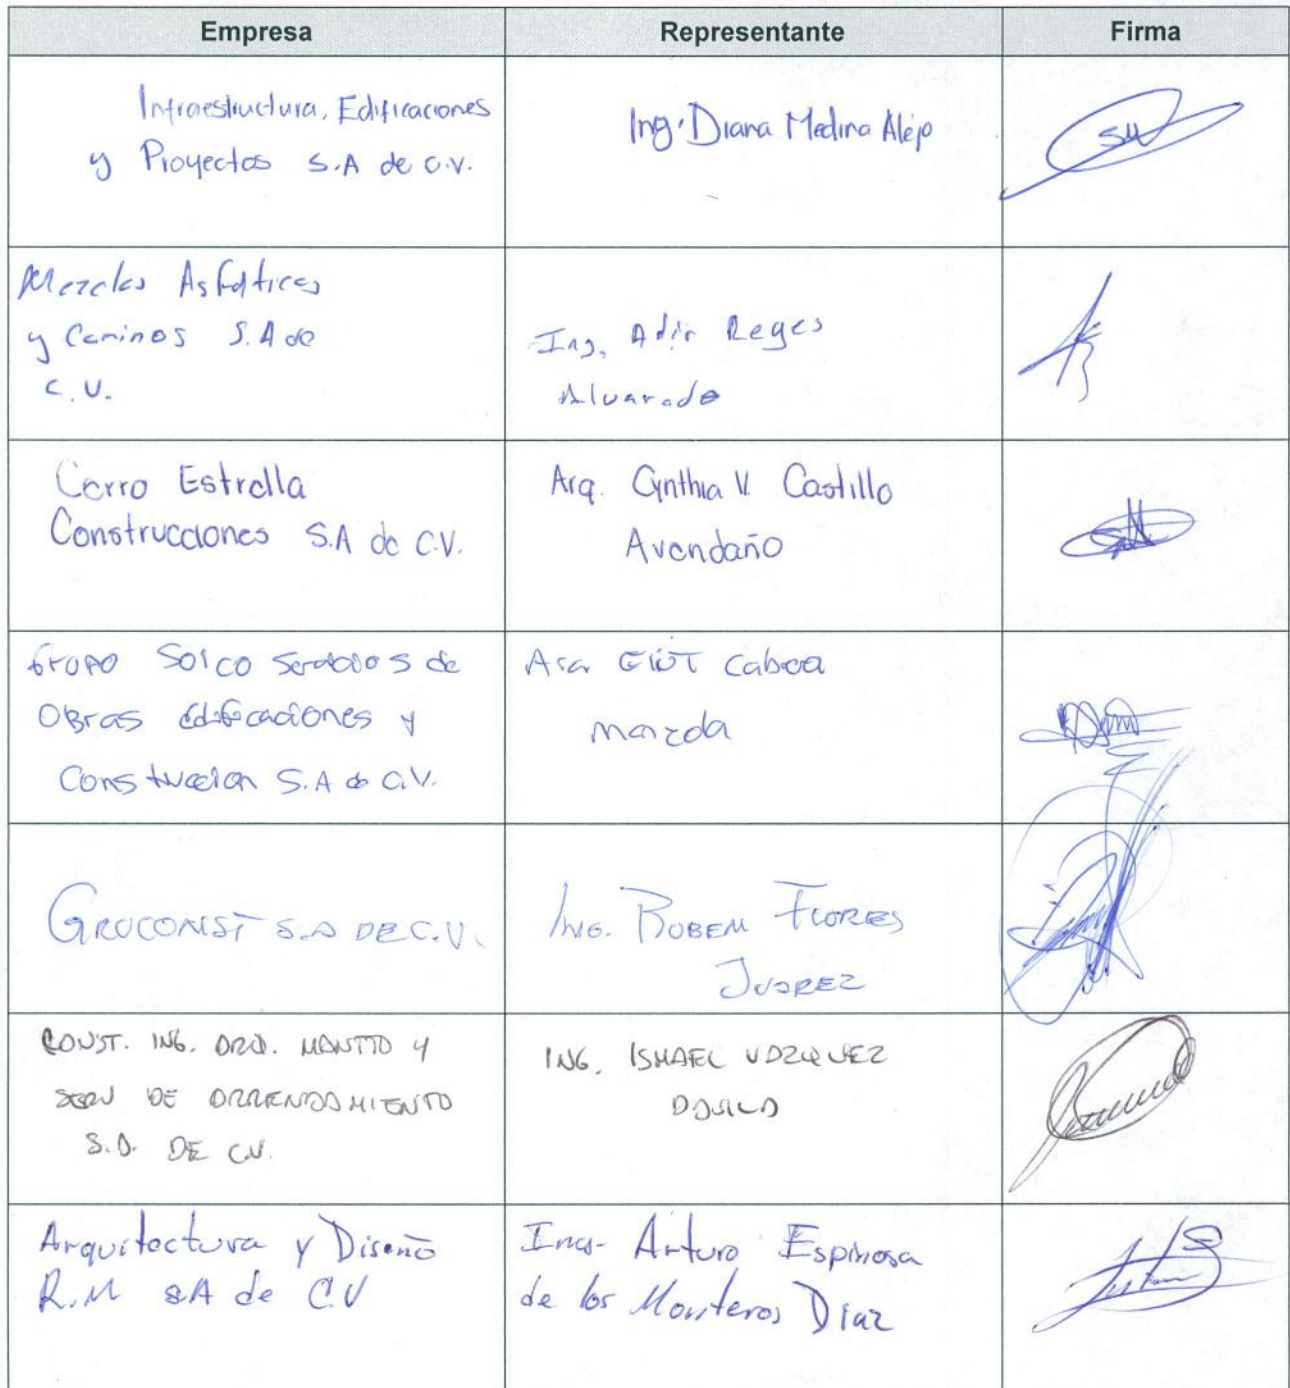 Empresa Representante Firma
Infraestructura, Edificaciones
y Proyectos S.A de C.V.
Ing. Diana Medina Alejo
Mezclas Asfalticas
y Caminos S.A de
C.V.
Ing. Adir Reyes
Alvarado
Cerro Estrella
Construcciones S.A de C.V.
Arq. Cynthia V. Castillo
Avendaño
Grupo Solco Servicios de
Obras edificaciones y
Construccion S.A de C.V.
Cabeza
GRUCONST S.A DE C.V.
ING. RUBEN FLORES
JUAREZ
CONST. ING. ARQ. MANTTO Y
SERV DE ARRENDAMIENTO
S.A. DE C.V.
ING. ISMAEL VAZQUEZ
DAVILA
Arquitectura y Diseño
R.M SA de C.V
Ing. Arturo Espinosa
de los Monteros Diaz